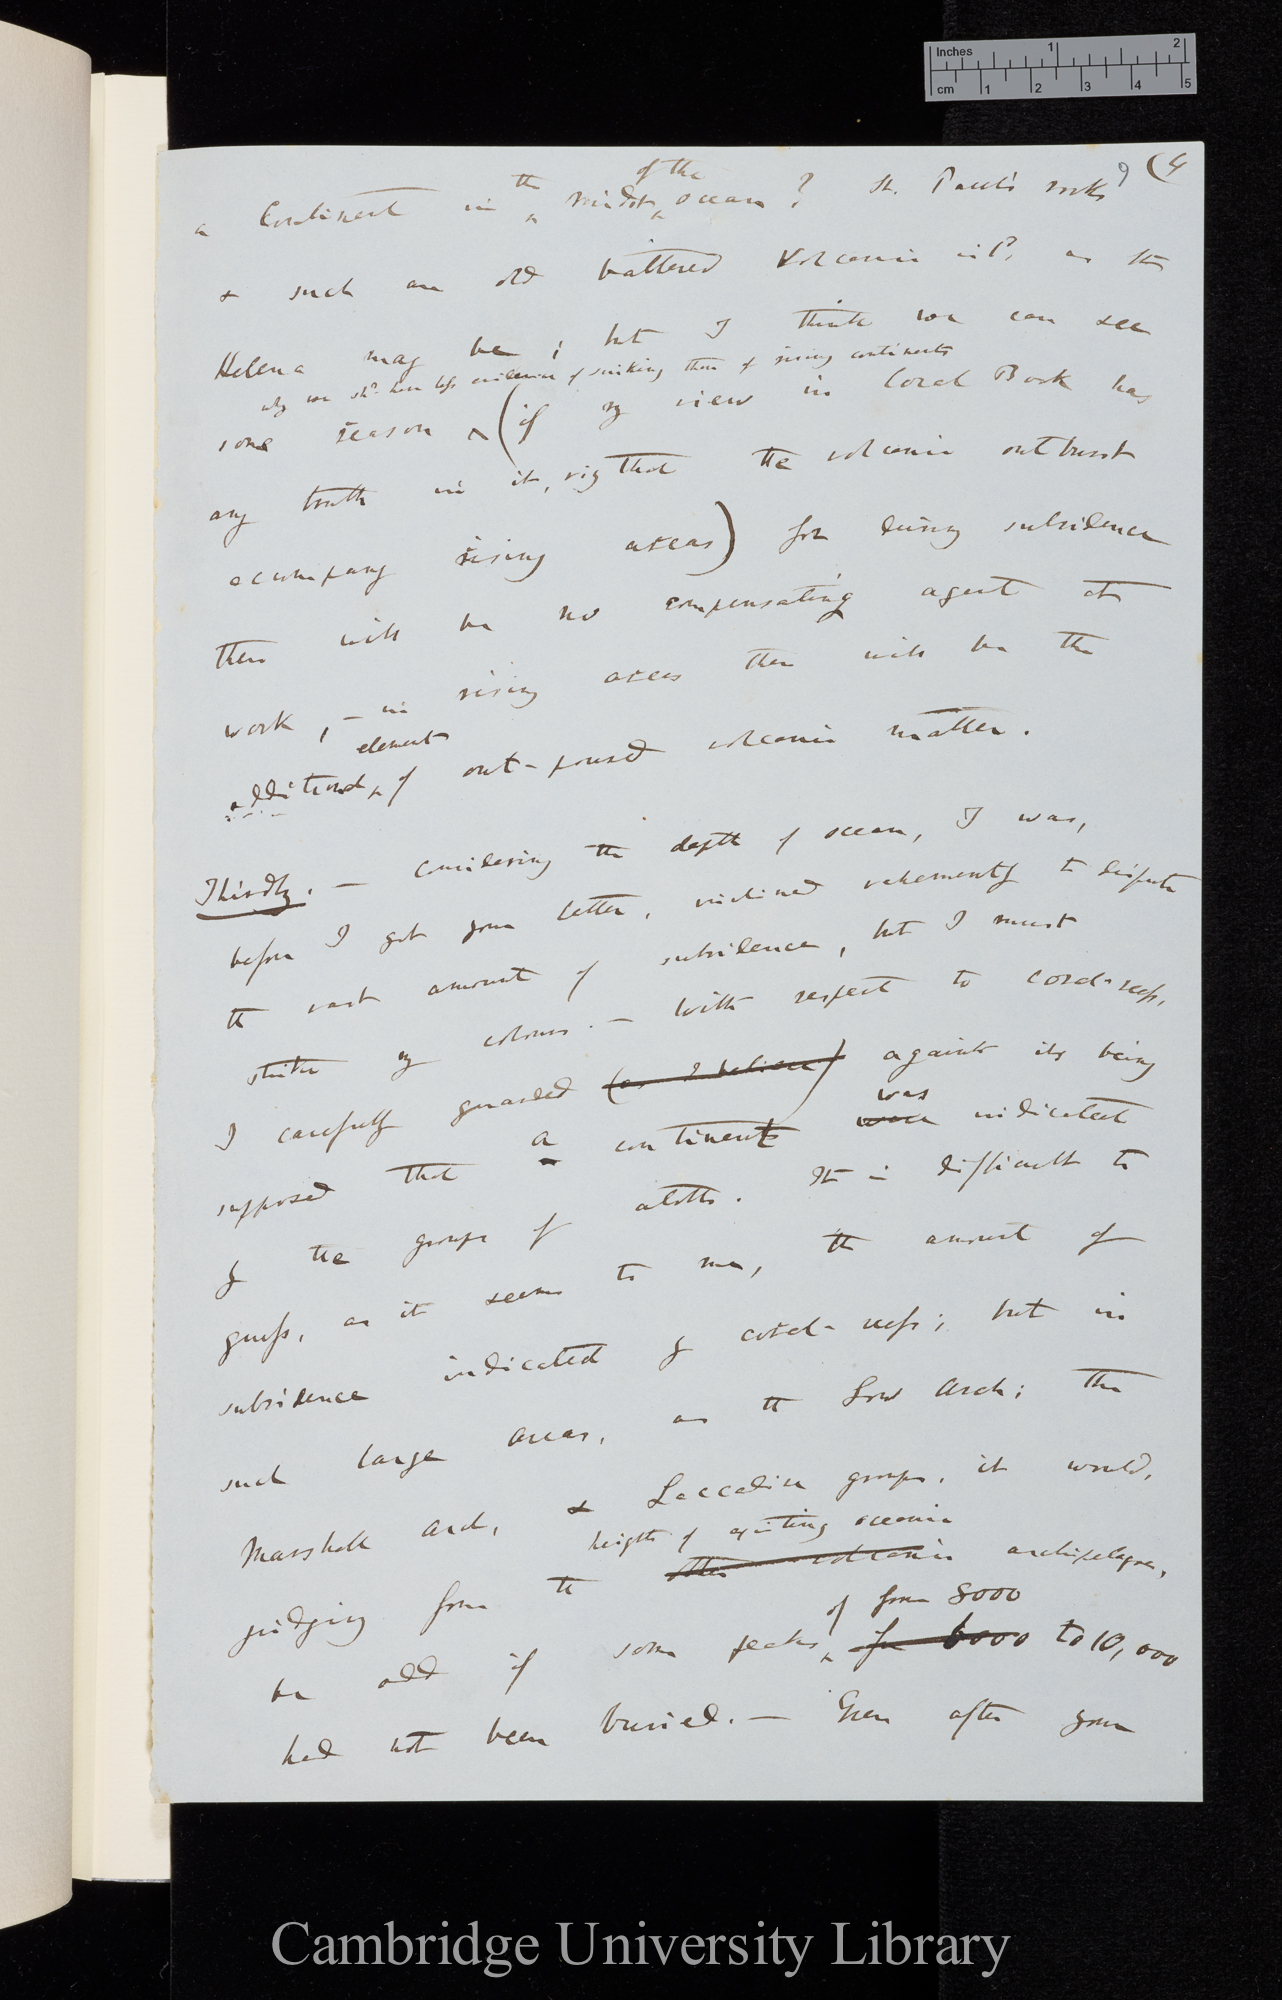 Inches 1 2
cm 1 2 3 4 5
9 (4
the of the
a Continent in midst ocean? St. Paul's rocks
& such an old battered Volcanic isld, as St
Helena may be; but I think we can see
why we shd have less evidence of sinking than of rising continents
some reason (if my view in Coral Book has
any truth in it, viz that the volcanic outburst
accompany rising areas) for during subsidence
there will be no compensating agent at
work, — in rising areas there will be the
element
additional of out-poured volcanic matter.
Thirdly. — Considering the depth of ocean, I was,
before I got your letter, inclined vehemently to dispute
the vast amount of subsidence, but I must
strike my colours. — With respect to coral-reefs,
I carefully guarded (as I believe) against its being
was
supposed that a continent were indicated
by the groups of atolls. It is difficult to
guess, as it seems to me, the amount of
subsidence indicated by coral-reefs; but in
such large areas, as the Low Arch; the
Marshall Arch, & Laccadive groups, it would,
heights of existing oceanic
judging from the other volcanic archipelagoes,
of from 8000
be odd if some peaks for 6000 to 10,000
had not been buried. — Even after your
Cambridge University Library